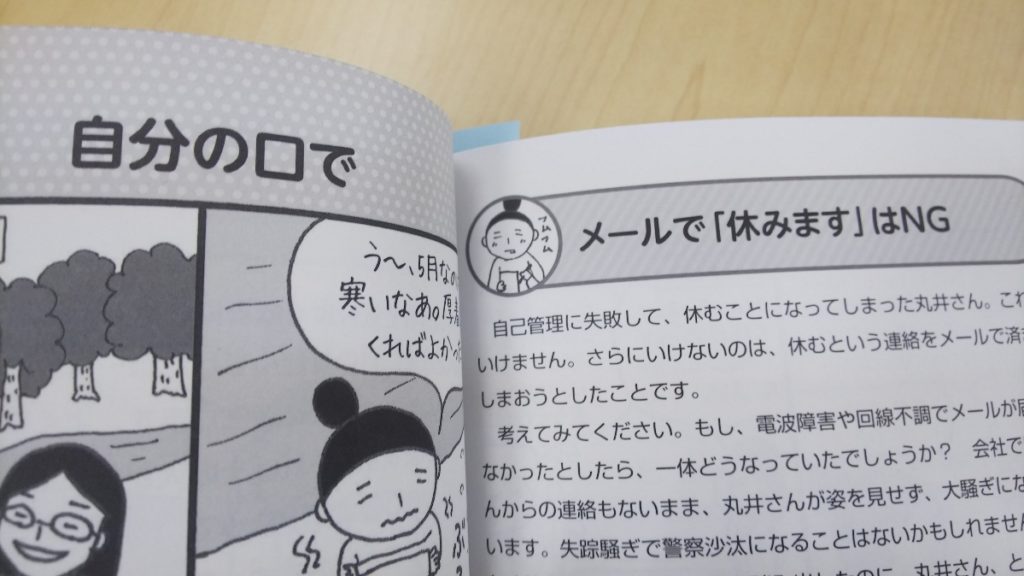 自分の口で
う〜、5月なの
寒いなあ。厚着
くればよかっ
ブ
フムフム
メールで「休みます」はNG
自己管理に失敗して、休むことになってしまった丸井さん。これ
いけません。さらにいけないのは、休むという連絡をメールで済
しまおうとしたことです。
考えてみてください。もし、電波障害や回線不調でメールが届
なかったとしたら、一体どうなっていたでしょうか？ 会社で
んからの連絡もないまま、丸井さんが姿を見せず、大騒ぎにな
います。失踪騒ぎで警察沙汰になることはないかもしれません
のに、丸井さん、と